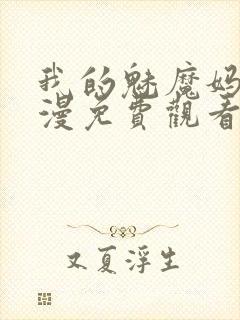 我的魅魔妈
漫免費觀看
又夏浮生